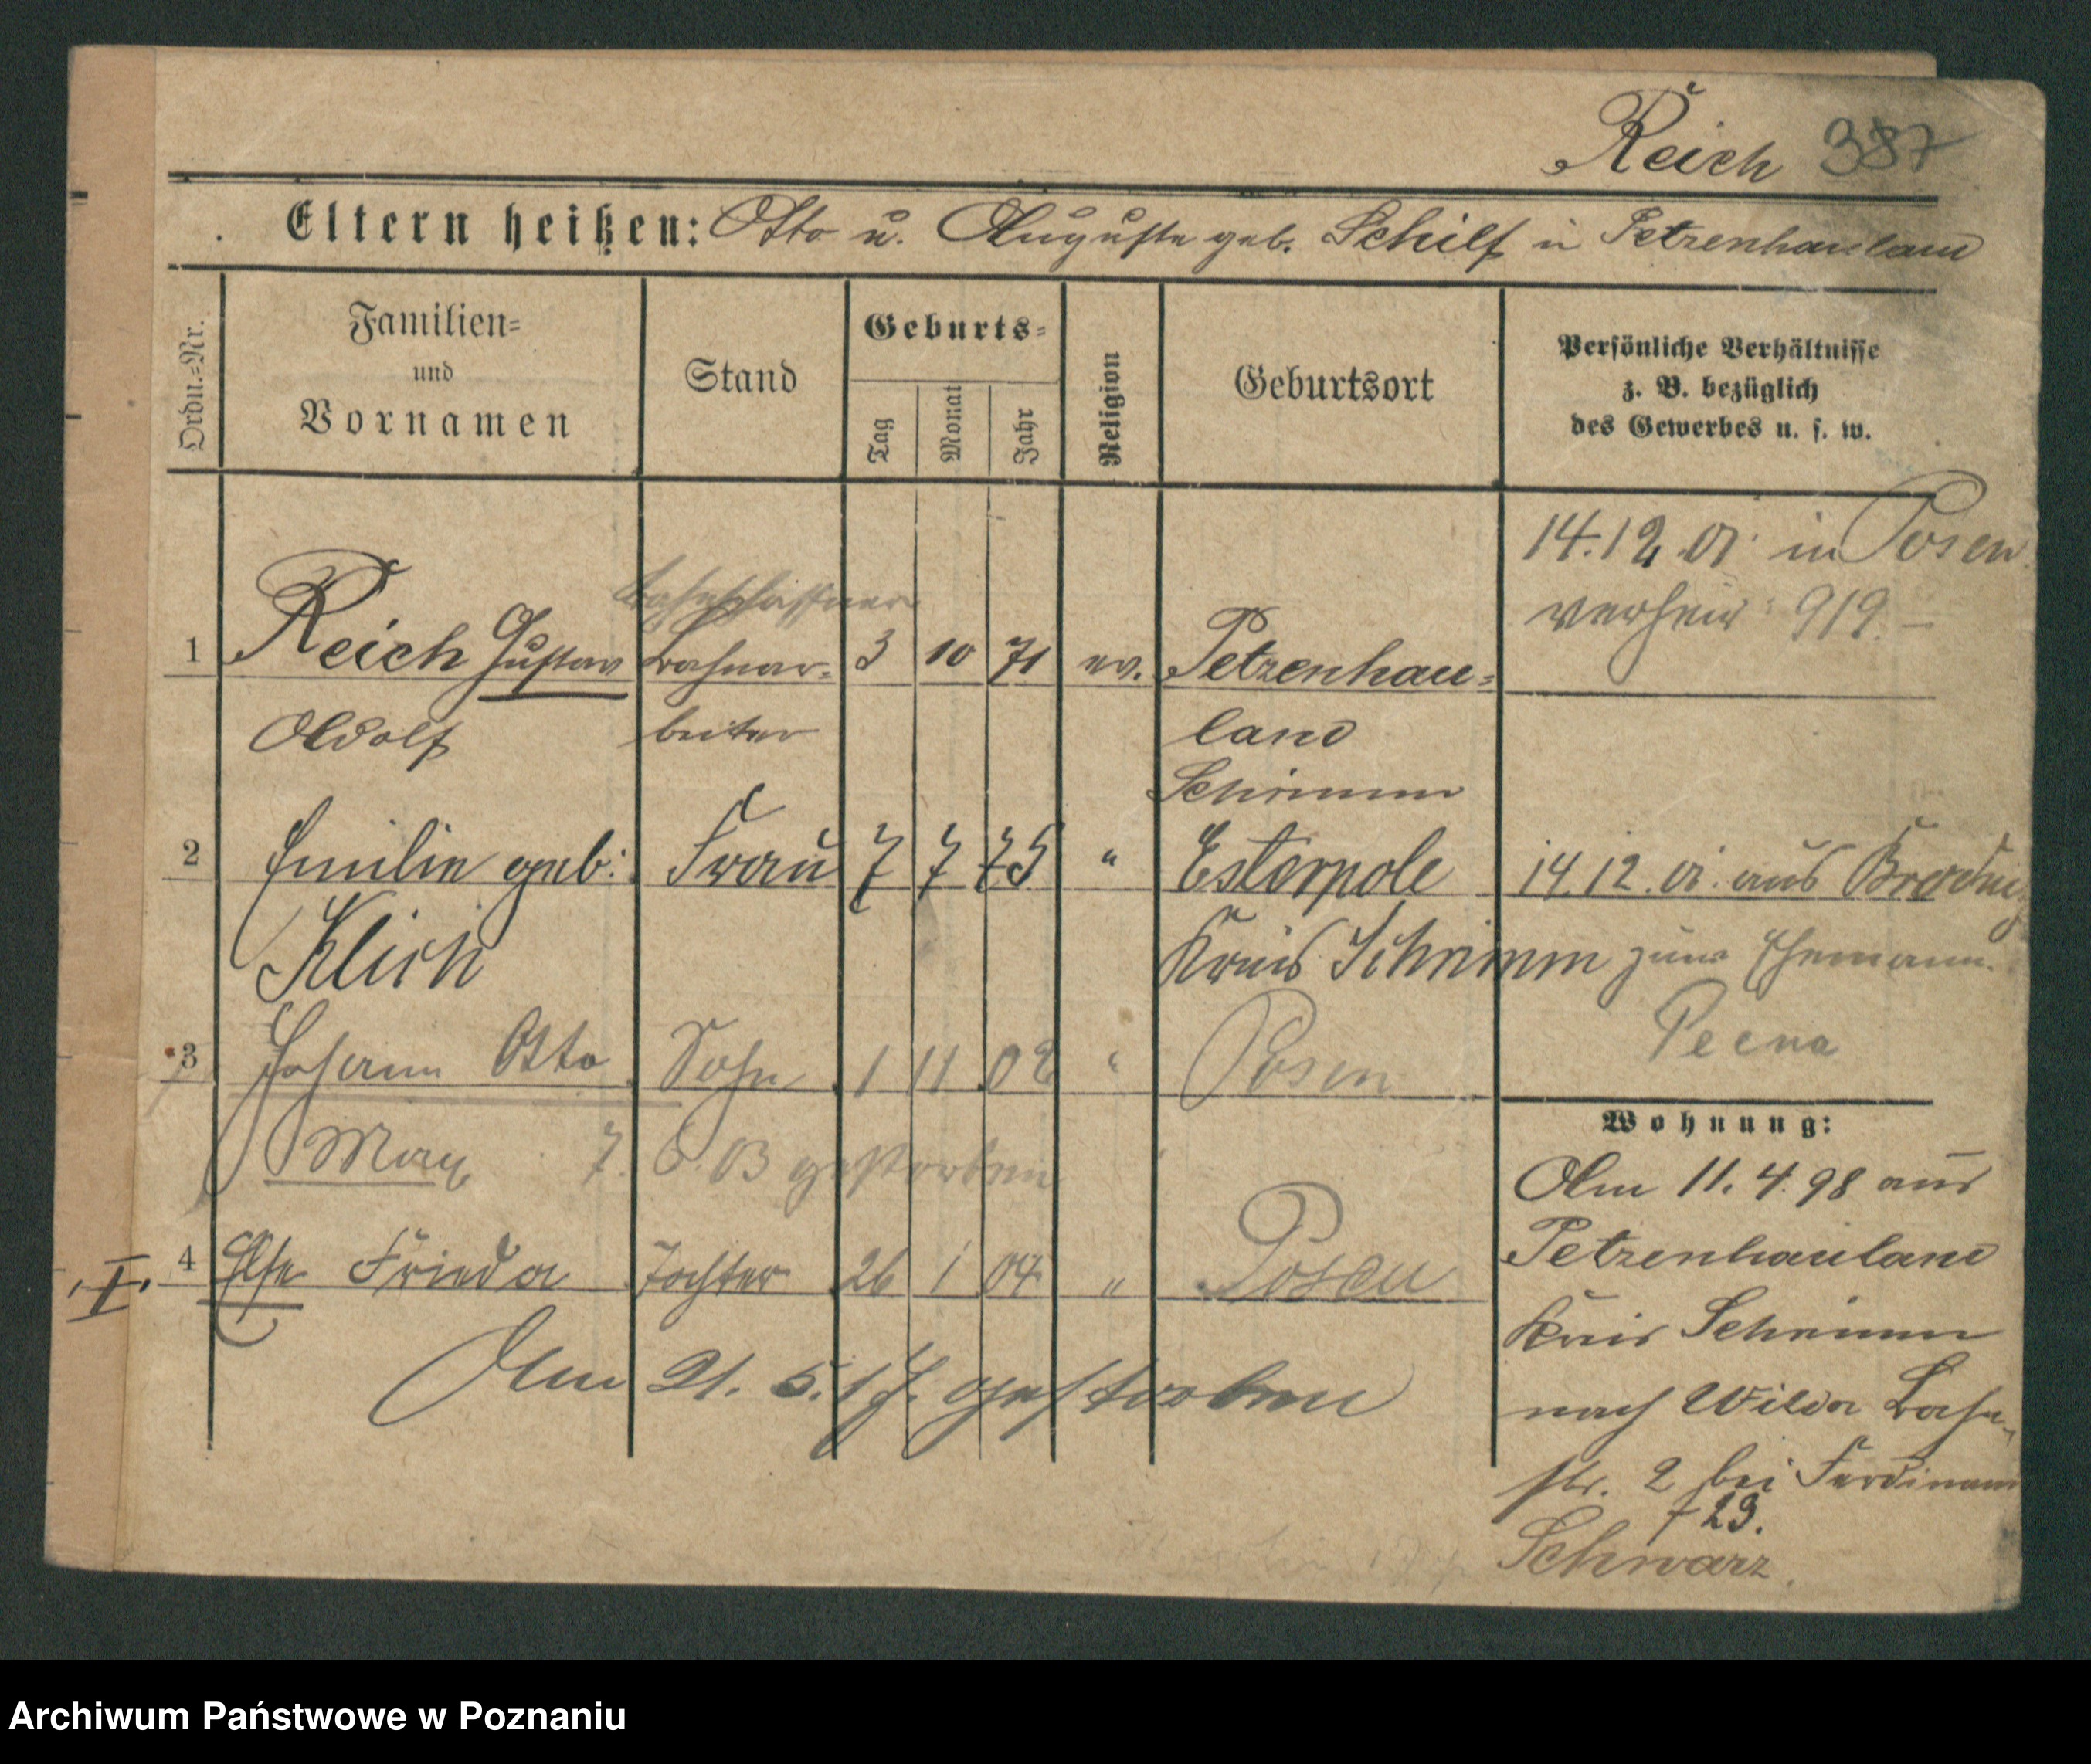 Reich 387
Eltern heißen: Otto u. Auguste geb. Schilf in Petzenhauland
Ordn.-Nr.
Familien-
und
Vornamen
Stand
Geburts-
Tag
Monat
Jahr
Religion
Geburtsort
Persönliche Verhältnisse
z. B. bezüglich
des Gewerbes u. s. w.
14.12.01. in Posen
verheir: 919.–
Bahnschaffner
1 Reich Gustav Bahnar- 3 10 71 ev. Petzenhau-
Adolf beiter land
Schrimm
2 Emilie geb: Frau 7 7 75 " Esterpole 14.12.01. aus
Klich Kreis Schrimm zum Ehemann.
3 Johann Otto Sohn 1 11 02 " Posen
Max 7. 6. 03 gestorben
I. 4 Else Frieda Tochter 26 1 04 " Posen
Am 21. 5. gestorben
Wohnung:
Am 11. 4. 98 aus
Petzenhauland
Kreis Schrimm
nach Wilda Bahn-
str. 2 bei Ferdinand
729.
Schwarz.
Archiwum Państwowe w Poznaniu